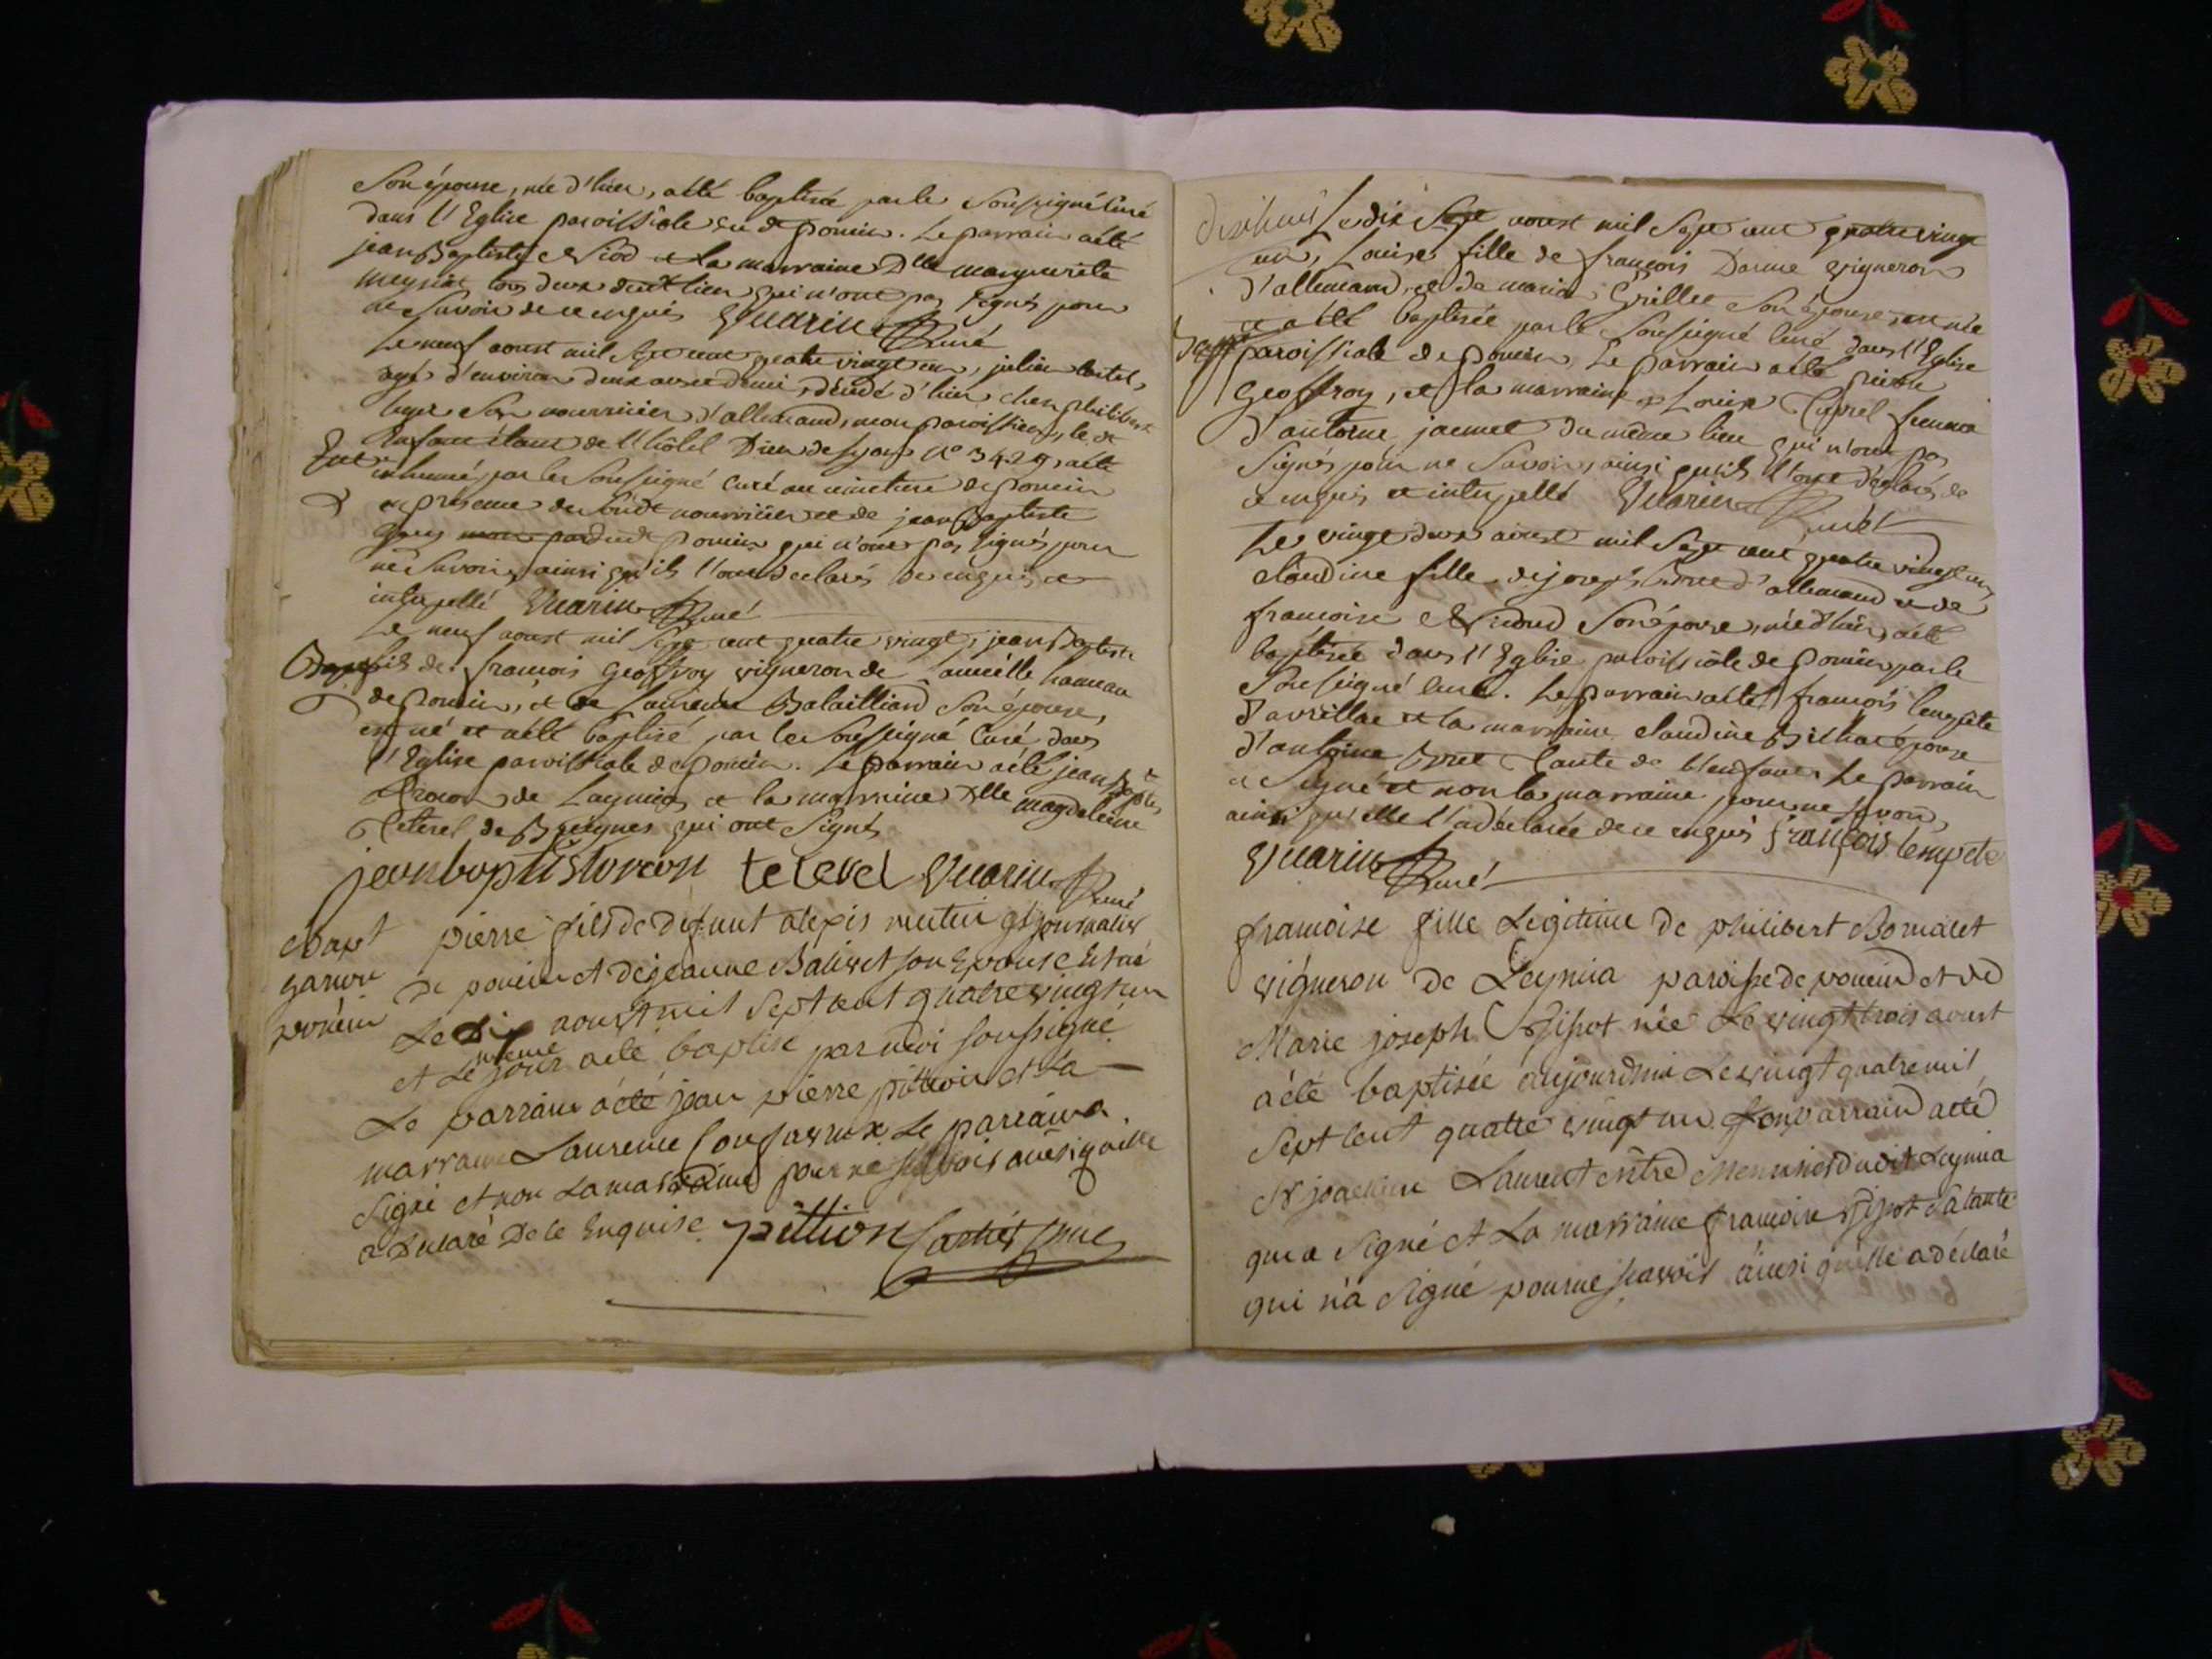 Son épouse, née d'hier, a été baptisée par le Soussigné Curé
dans l'Eglise paroissiale de poncin. Le parrain a été
jean Baptiste Niod et la marraine Dlle marguerite
meyriat tous deux dudt lieu qui n'ont pas signés pour
ne Savoir de ce enquis Guarin Curé
Le neuf aoust mil Sept cent quatre vingt un, julien
agé d'environ deux ans et demi, décédé d'hier chez philibert
Son nourricier d'allemand, mon paroissien, le dt
Enfant étant de l'hôtel Dieu de Lyon N° 3429, a été
inhumé par le Soussigné Curé au cimetiere de poncin
en presence dudit nourricier et de jean Baptiste
de poncin qui n'ont pas signés pour
ne Savoir, ainsi qu'ils l'ont declarés de ce enquis et
interpellé Guarin Curé
Le neuf aoust mil Sept cent quatre vingt, jean Baptiste
Bapt fils de françois Geoffroy vigneron de hameau
de poncin, et de Laurence Balailliard Son épouse,
est né et a été baptisé par le Soussigné Curé dans
l'Eglise paroissiale de poncin. Le parrain a été jean Bapte
de Leymia et la marraine Dlle magdeleine
Teterel de qui ont Signés
jean baptis torcon teterel Guarin Curé
Bapt pierre fils de defunt alexis journalier
garcon de poncin et de jeanne Balivet son Epouse Est né
poncin Le dix aoust mil Sept cent quatre vingt un
et Le même jour a été baptisé par moi soussigné
Le parrain a été jean pierre pittion et La
marraine Laurence Le parrain a
Signé et non La marraine pour ne sçavoir ainsi qu'elle
a declaré De ce Enquise pittion
dixhuit Le dix Sept aoust mil Sept cent quatre vingt
un, Louise fille de françois Darme vigneron
d'allemand, et de marie Grillet Son épouse, est née
Bapt et a été baptisée par le Soussigné Curé dans l'Eglise
paroissiale de poncin, Le parrain a été pierre
Geoffroy, et la marraine Louise femme
d'antoine jacmet du même lieu qui n'ont pas
Signés pour ne Savoir, ainsi qu'ils l'ont déclarés de
ce enquis et interpellé Guarin Curé
Le vingt deux aoust mil Sept cent quatre vingt un
claudine fille de joseph d'allemand et de
francoise Son épouse, née d'hier, a été
baptisée dans l'Eglise paroissiale de poncin par le
Soussigné Curé. Le parrain a été françois tempête
d'avrillat et la marraine claudine Bilhac épouse
d'antoine tante de l'enfant Le parrain
a Signé et non la marraine pour ne Savoir,
ainsi qu'elle l'a déclarée de ce enquis françois tempete
Guarin Curé
francoise fille Legitime de philibert Bomalet
vigneron de Leymia paroisse de poncin et de
Marie joseph née Le vingt trois aoust
a été baptisée aujourdhui Le vingt quatre mil
Sept Cent quatre vingt un Son parrain a été
Sr joachim Laurent Mtre Menuisier dudit Leymia
qui a Signé et La marraine francoise Sa tante
qui n'a Signé pour ne sçavoir ainsi qu'elle a déclaré